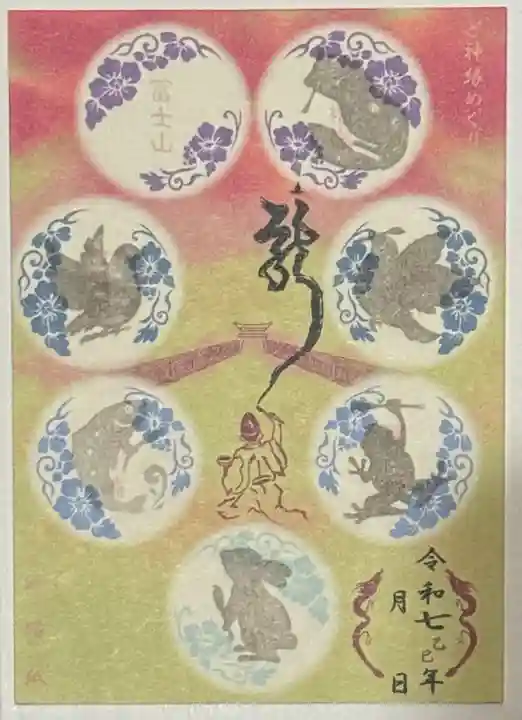 ど神塔めぐり
富士山
龍
令和七乙巳年
月 日